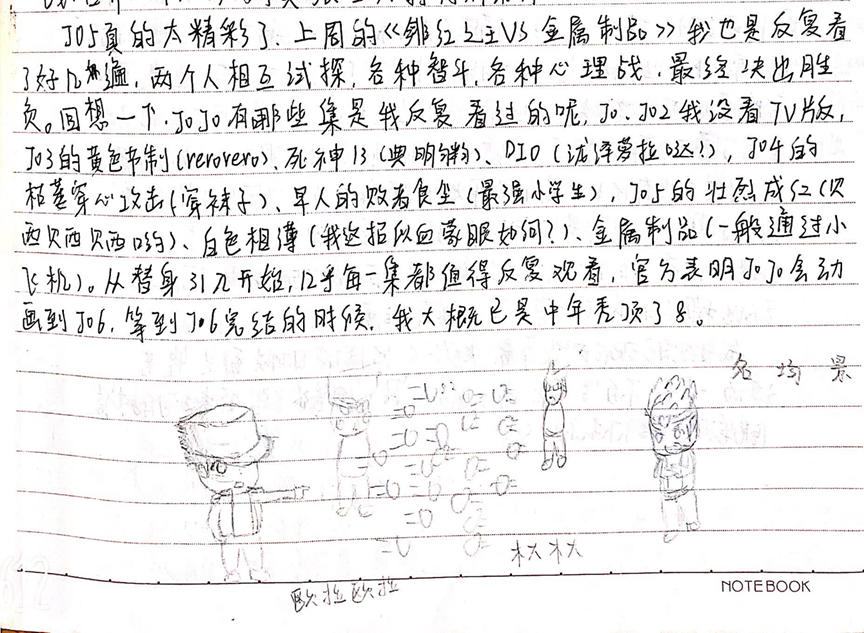 JO5真的太精彩了、上周的《绯红之王VS金属制品》我也是反复看
了好几遍，两个人相互试探，各种智斗，各种心理战，最终决出胜
负。回想一下，JOJO有哪些集是我反复看过的呢，Jo、JO2我没看TV版，
JO3的黄色节制(rerorero)、死神13(典明粥)、DIO(法泽萝拉哒!)，JO4的
枯萎穿心攻击(穿袜子)、早人的败者食尘(最强小学生)，JO5的壮烈成仁(贝
西贝西贝西哟)、白色相簿(我这招似血蒙眼如何?)、金属制品(一般通过小
飞机)。从替身31几开始，几乎每一集都值得反复观看，官方表明JOJO会动
画到JO6，等到JO6完结的时候，我大概已是中年秃顶了8。
名场景
木大木大
欧拉欧拉
NOTEBOOK